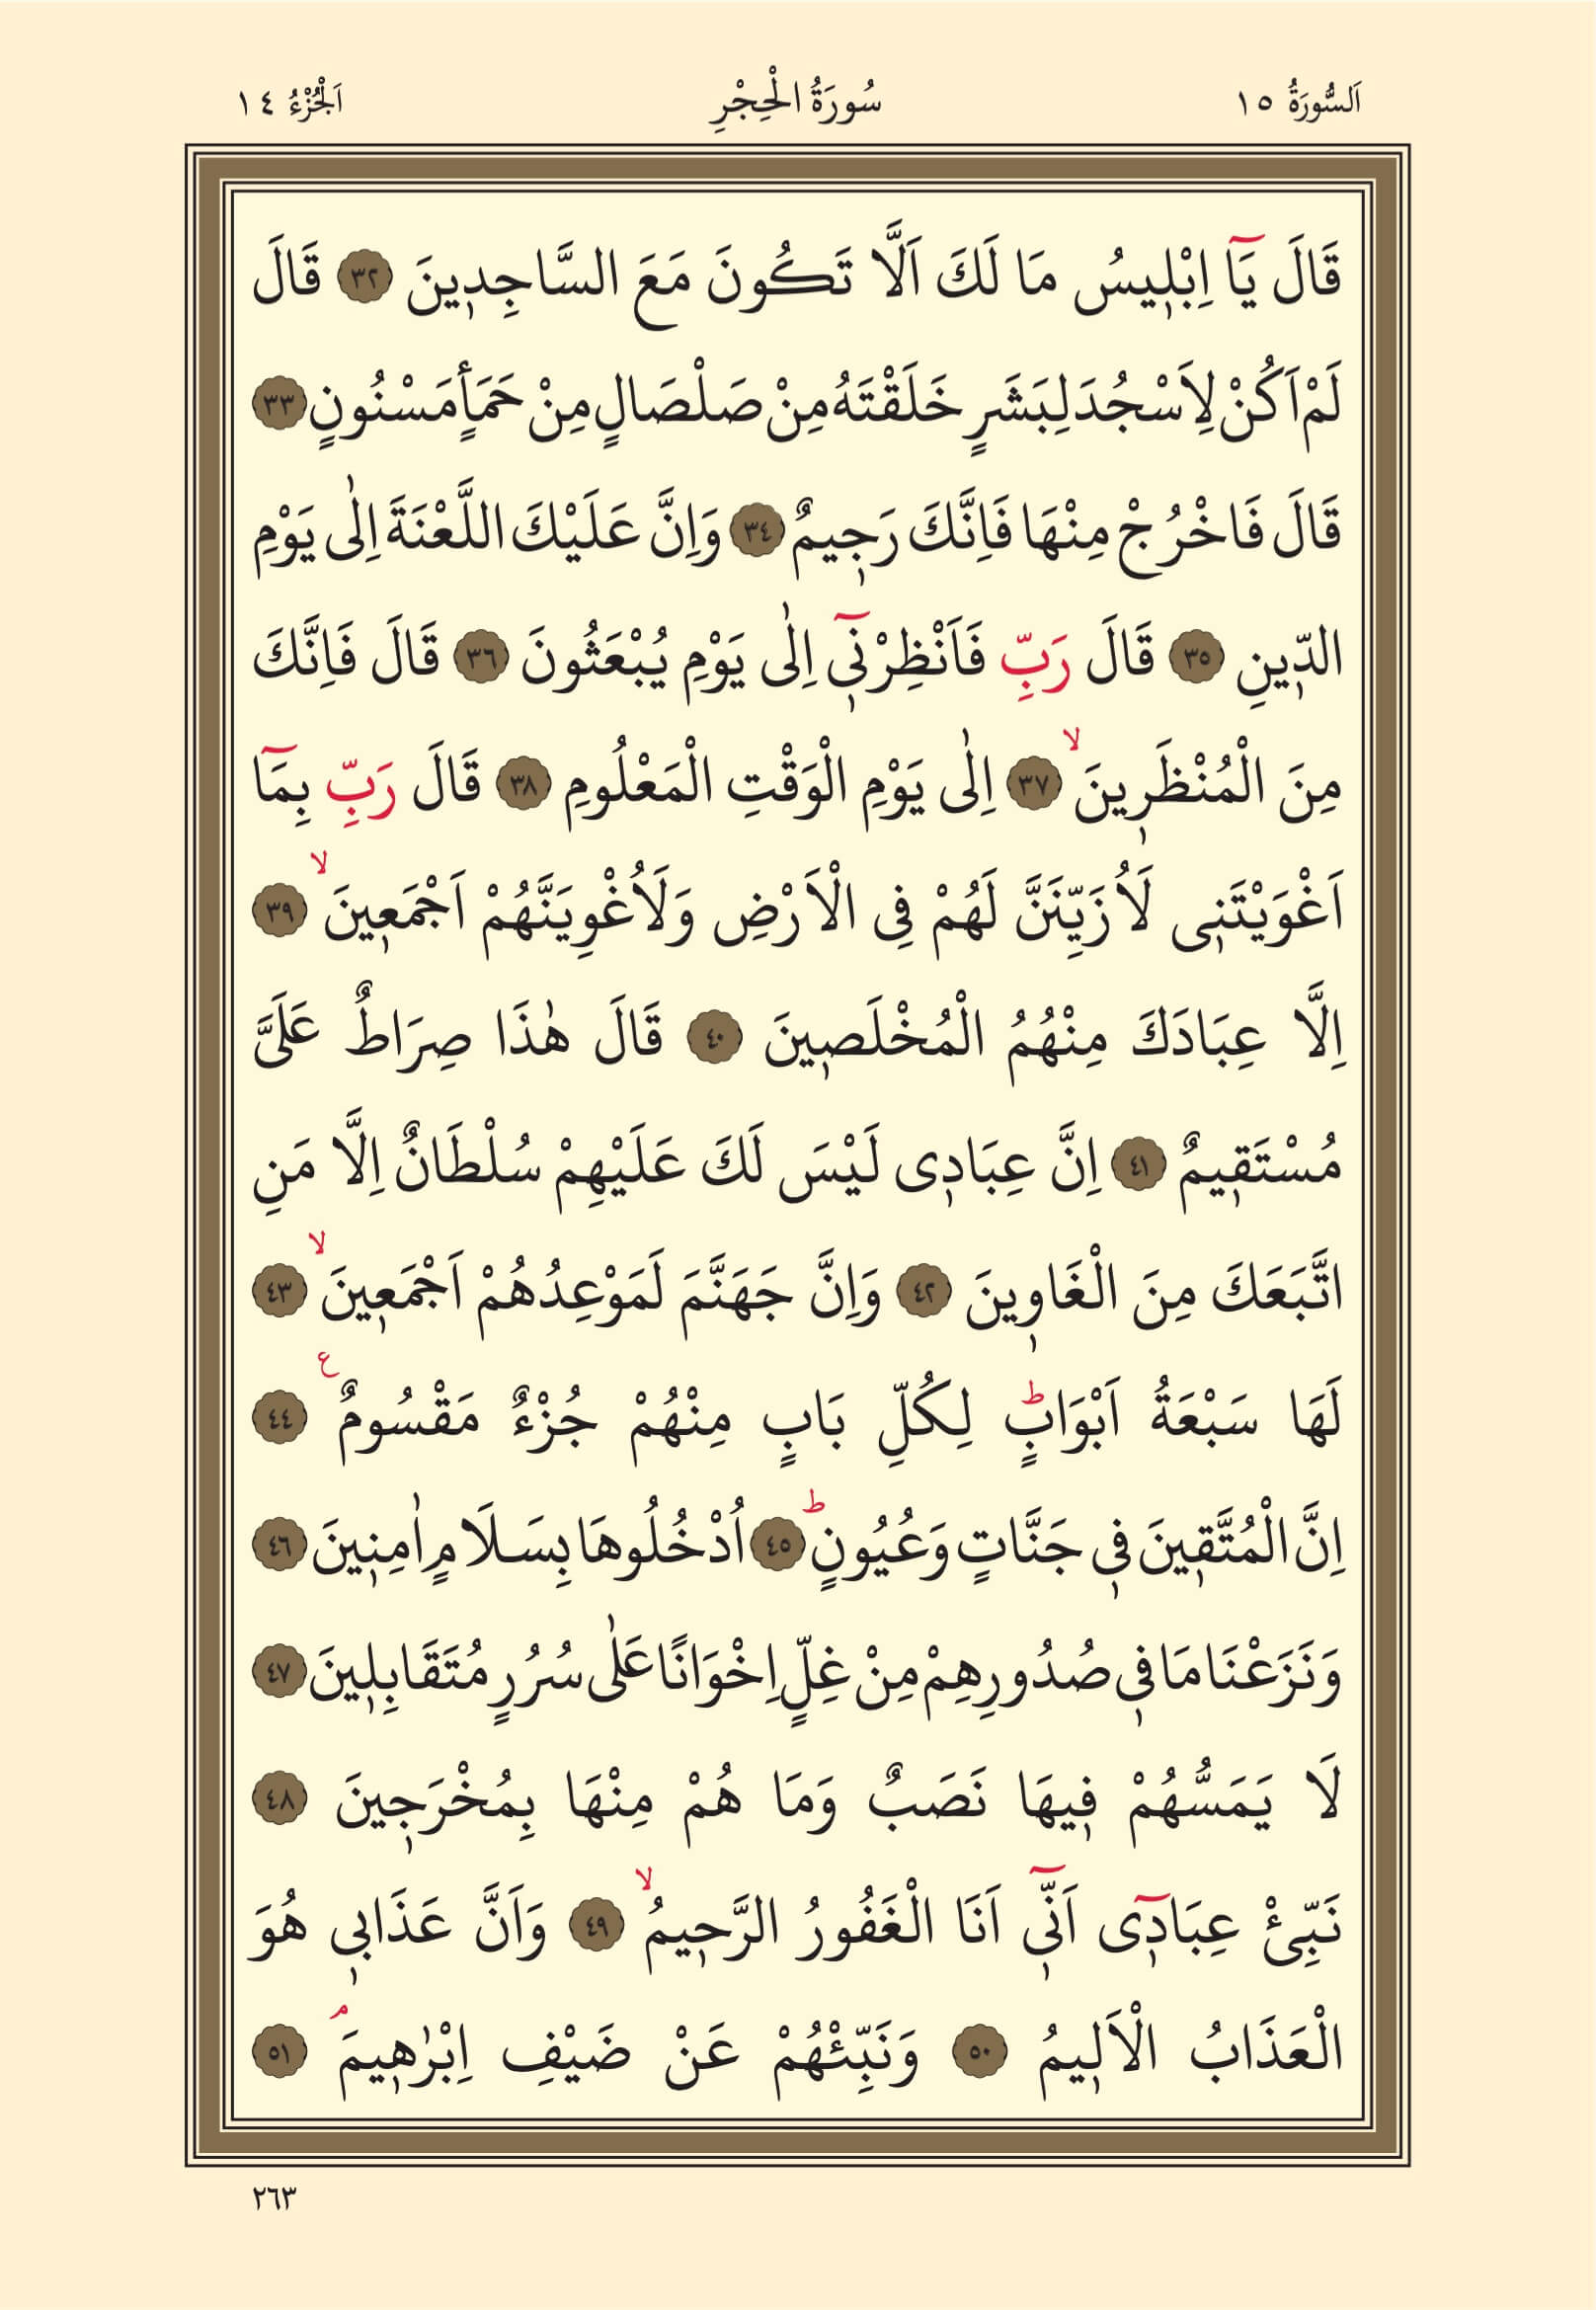 اَلسُّورَةُ ١٥
سُورَةُ الْحِجْرِ
اَلْجُزْءُ ١٤
قَالَ يَٓا اِبْل۪يسُ مَا لَكَ اَلَّا تَكُونَ مَعَ السَّاجِد۪ينَ ٣٢ قَالَ
لَمْ اَكُنْ لِاَسْجُدَ لِبَشَرٍ خَلَقْتَهُ مِنْ صَلْصَالٍ مِنْ حَمَأٍ مَسْنُونٍ ٣٣
قَالَ فَاخْرُجْ مِنْهَا فَاِنَّكَ رَج۪يمٌ ٣٤ وَاِنَّ عَلَيْكَ اللَّعْنَةَ اِلٰى يَوْمِ
الدّ۪ينِ ٣٥ قَالَ رَبِّ فَاَنْظِرْن۪ٓي اِلٰى يَوْمِ يُبْعَثُونَ ٣٦ قَالَ فَاِنَّكَ
مِنَ الْمُنْظَر۪ينَۙ ٣٧ اِلٰى يَوْمِ الْوَقْتِ الْمَعْلُومِ ٣٨ قَالَ رَبِّ بِمَٓا
اَغْوَيْتَن۪ى لَاُزَيِّنَنَّ لَهُمْ فِى الْاَرْضِ وَلَاُغْوِيَنَّهُمْ اَجْمَع۪ينَۙ ٣٩
اِلَّا عِبَادَكَ مِنْهُمُ الْمُخْلَص۪ينَ ٤٠ قَالَ هٰذَا صِرَاطٌ عَلَىَّ
مُسْتَق۪يمٌ ٤١ اِنَّ عِبَاد۪ى لَيْسَ لَكَ عَلَيْهِمْ سُلْطَانٌ اِلَّا مَنِ
اتَّبَعَكَ مِنَ الْغَاو۪ينَ ٤٢ وَاِنَّ جَهَنَّمَ لَمَوْعِدُهُمْ اَجْمَع۪ينَۙ ٤٣
لَهَا سَبْعَةُ اَبْوَابٍۜ لِكُلِّ بَابٍ مِنْهُمْ جُزْءٌ مَقْسُومٌ ع ٤٤
اِنَّ الْمُتَّق۪ينَ ف۪ي جَنَّاتٍ وَعُيُونٍۜ ٤٥ اُدْخُلُوهَا بِسَلَامٍ اٰمِن۪ينَ ٤٦
وَنَزَعْنَا مَا ف۪ي صُدُورِهِمْ مِنْ غِلٍّ اِخْوَانًا عَلٰى سُرُرٍ مُتَقَابِل۪ينَ ٤٧
لَا يَمَسُّهُمْ ف۪يهَا نَصَبٌ وَمَا هُمْ مِنْهَا بِمُخْرَج۪ينَ ٤٨
نَبِّئْ عِبَاد۪ٓى اَنّ۪ٓي اَنَا الْغَفُورُ الرَّح۪يمُۙ ٤٩ وَاَنَّ عَذَاب۪ي هُوَ
الْعَذَابُ الْاَل۪يمُ ٥٠ وَنَبِّئْهُمْ عَنْ ضَيْفِ اِبْرٰه۪يمَۢ ٥١
٢٦٣